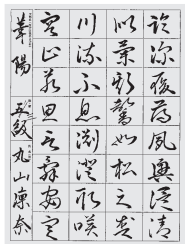 臨深履薄夙興温凊
似蘭斯馨如松之盛
川流不息淵澄取映
容止若思言辞安定
五段 丸山凛奈